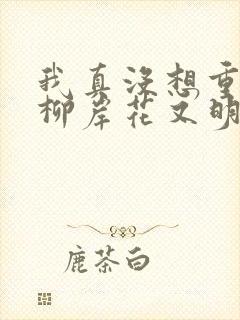 我真没想重
柳岸花又明
鹿茶白